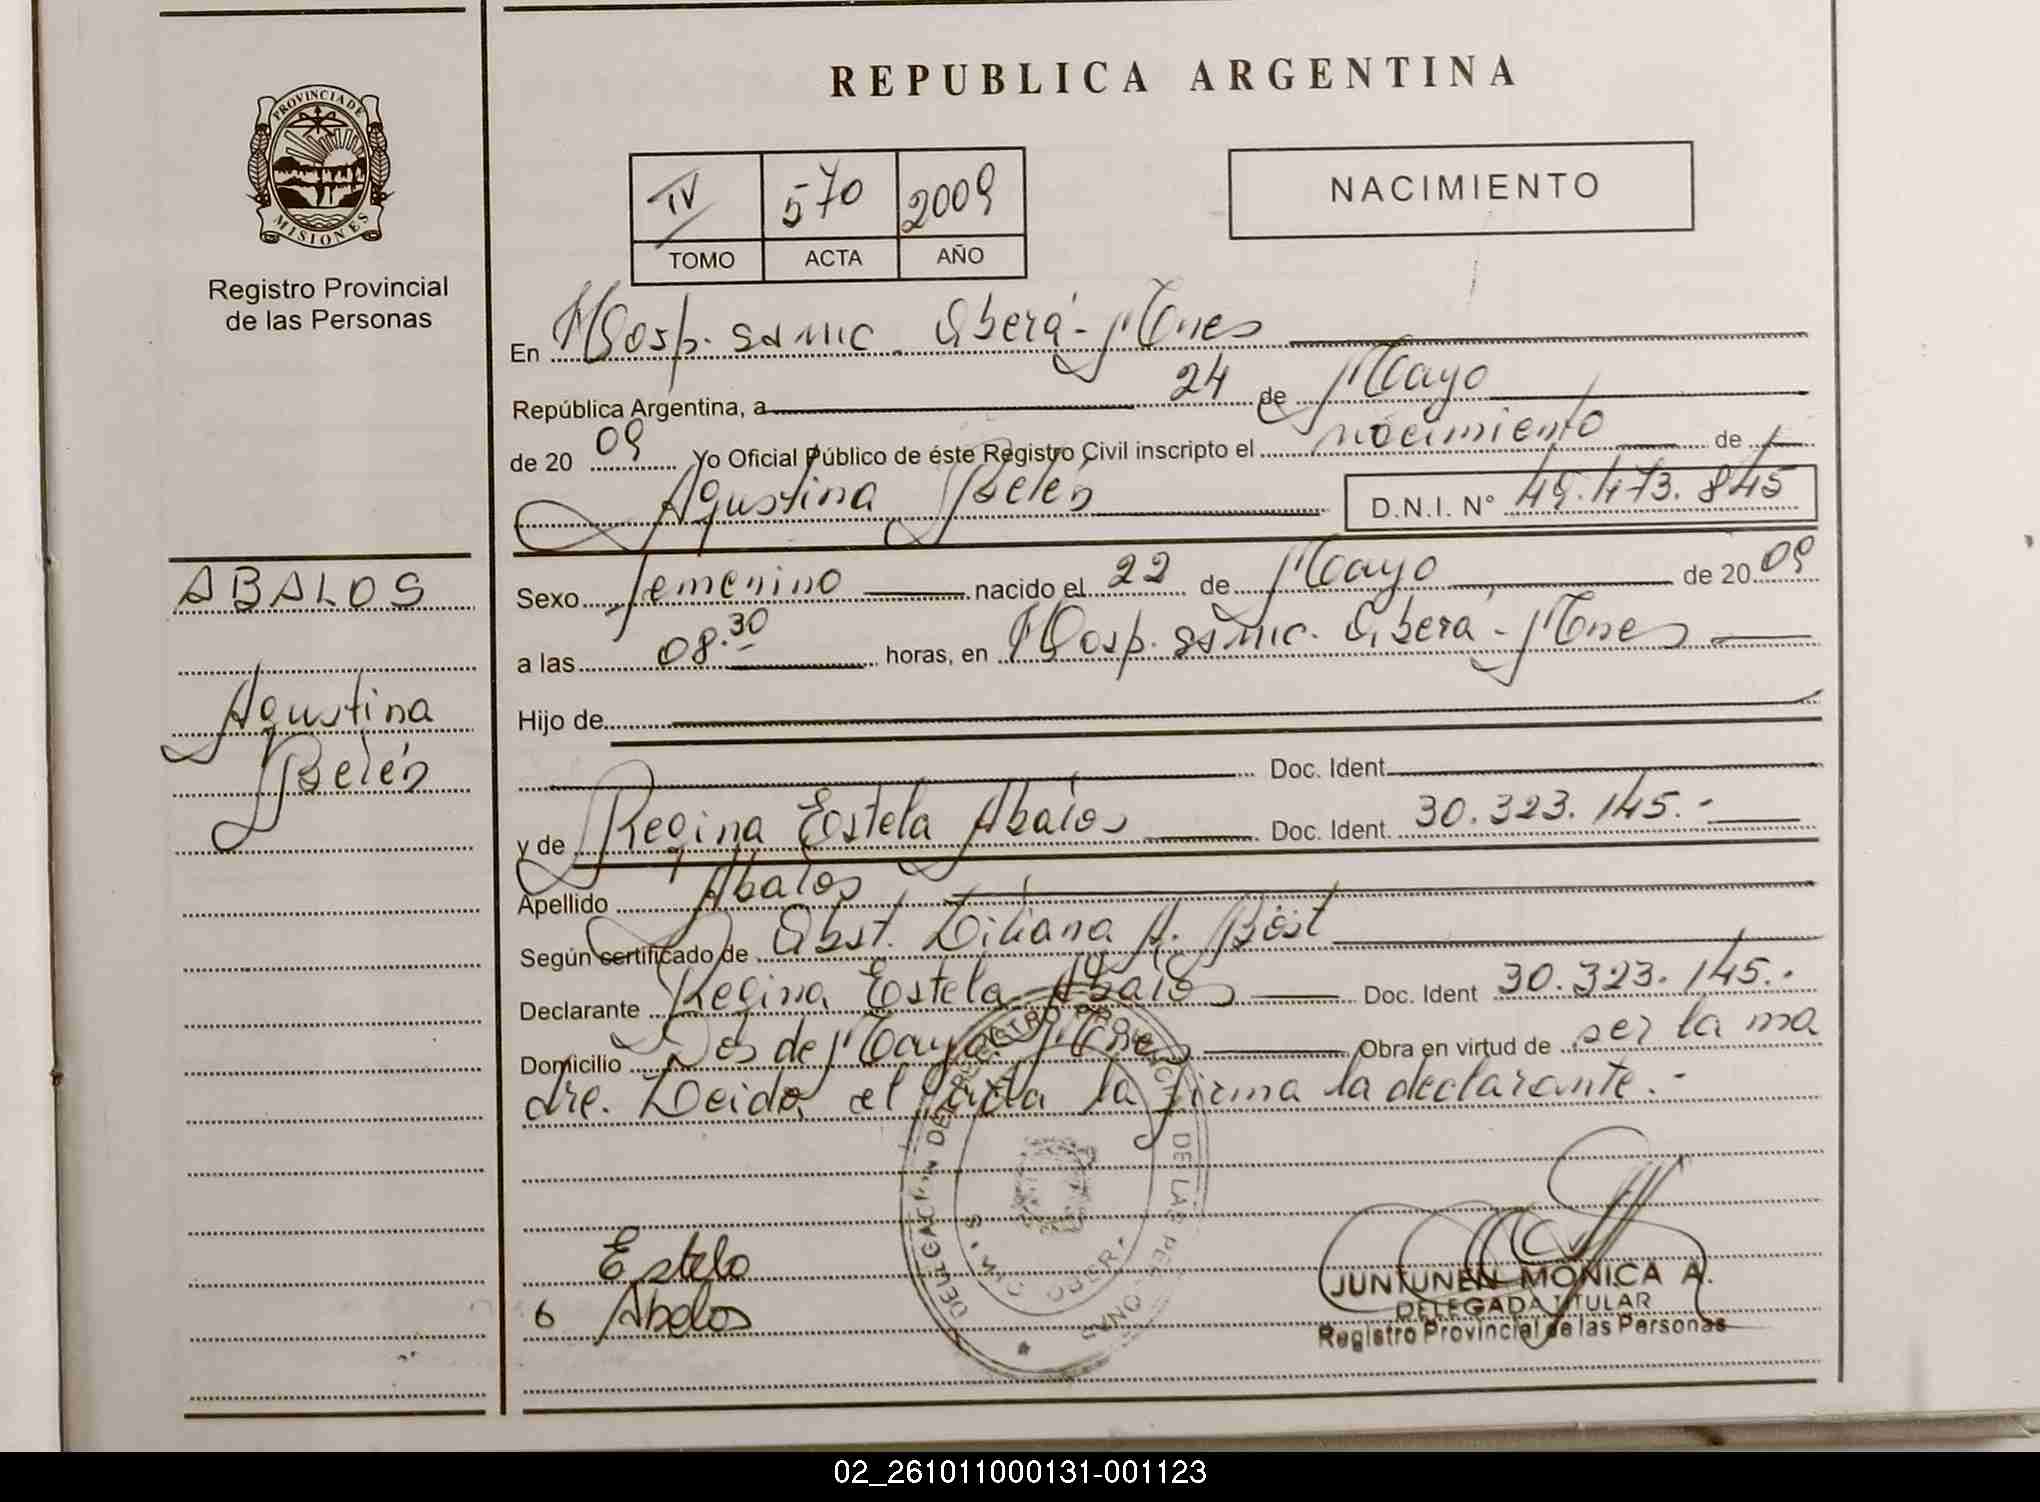 REPUBLICA ARGENTINA
PROVINCIA DE
MISIONES
Registro Provincial
de las Personas
IV 570 2009
TOMO ACTA AÑO
NACIMIENTO
En Hosp. samic. Oberá - Mnes
República Argentina, a 24 de Mayo
de 20 09 Yo Oficial Público de éste Registro Civil inscripto el nacimiento de
Agustina Belén D.N.I. Nº 49.473.845
ABALOS
Agustina
Belén
Sexo femenino nacido el 22 de Mayo de 20 09
a las 08.30 horas, en Hosp. samic. Oberá - Mnes
Hijo de
Doc. Ident.
y de Regina Estela Abalos Doc. Ident. 30.323.145.-
Apellido Abalos
Según certificado de Obst. Liliana A. Böst
Declarante Regina Estela Abalos Doc. Ident 30.323.145.-
Domicilio Dos de Mayo. Mnes Obra en virtud de ser la ma
dre. Leida el acta la firma la declarante.-
DELEGACION DEL REGISTRO PROVINCIAL DE LAS PERSONAS
Estela
6 Abalos
JUNTUNEN MONICA A.
DELEGADA TITULAR
Registro Provincial de las Personas
02_261011000131-001123